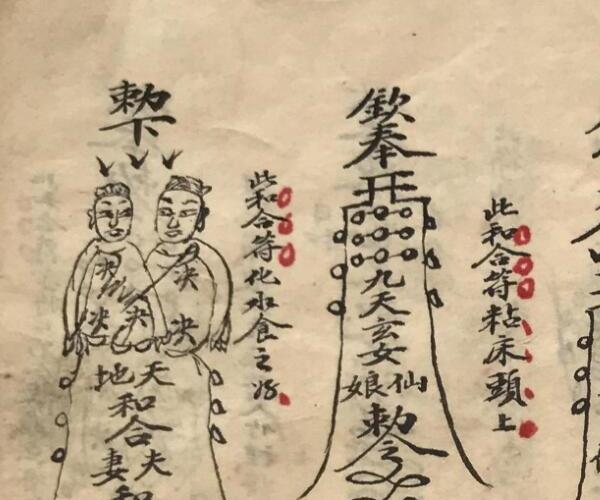 此和合符粘床頭上
欽奉
九天玄女仙娘勅令
此和合符化水食之好
勅下
决决决决
天地和合夫妻和